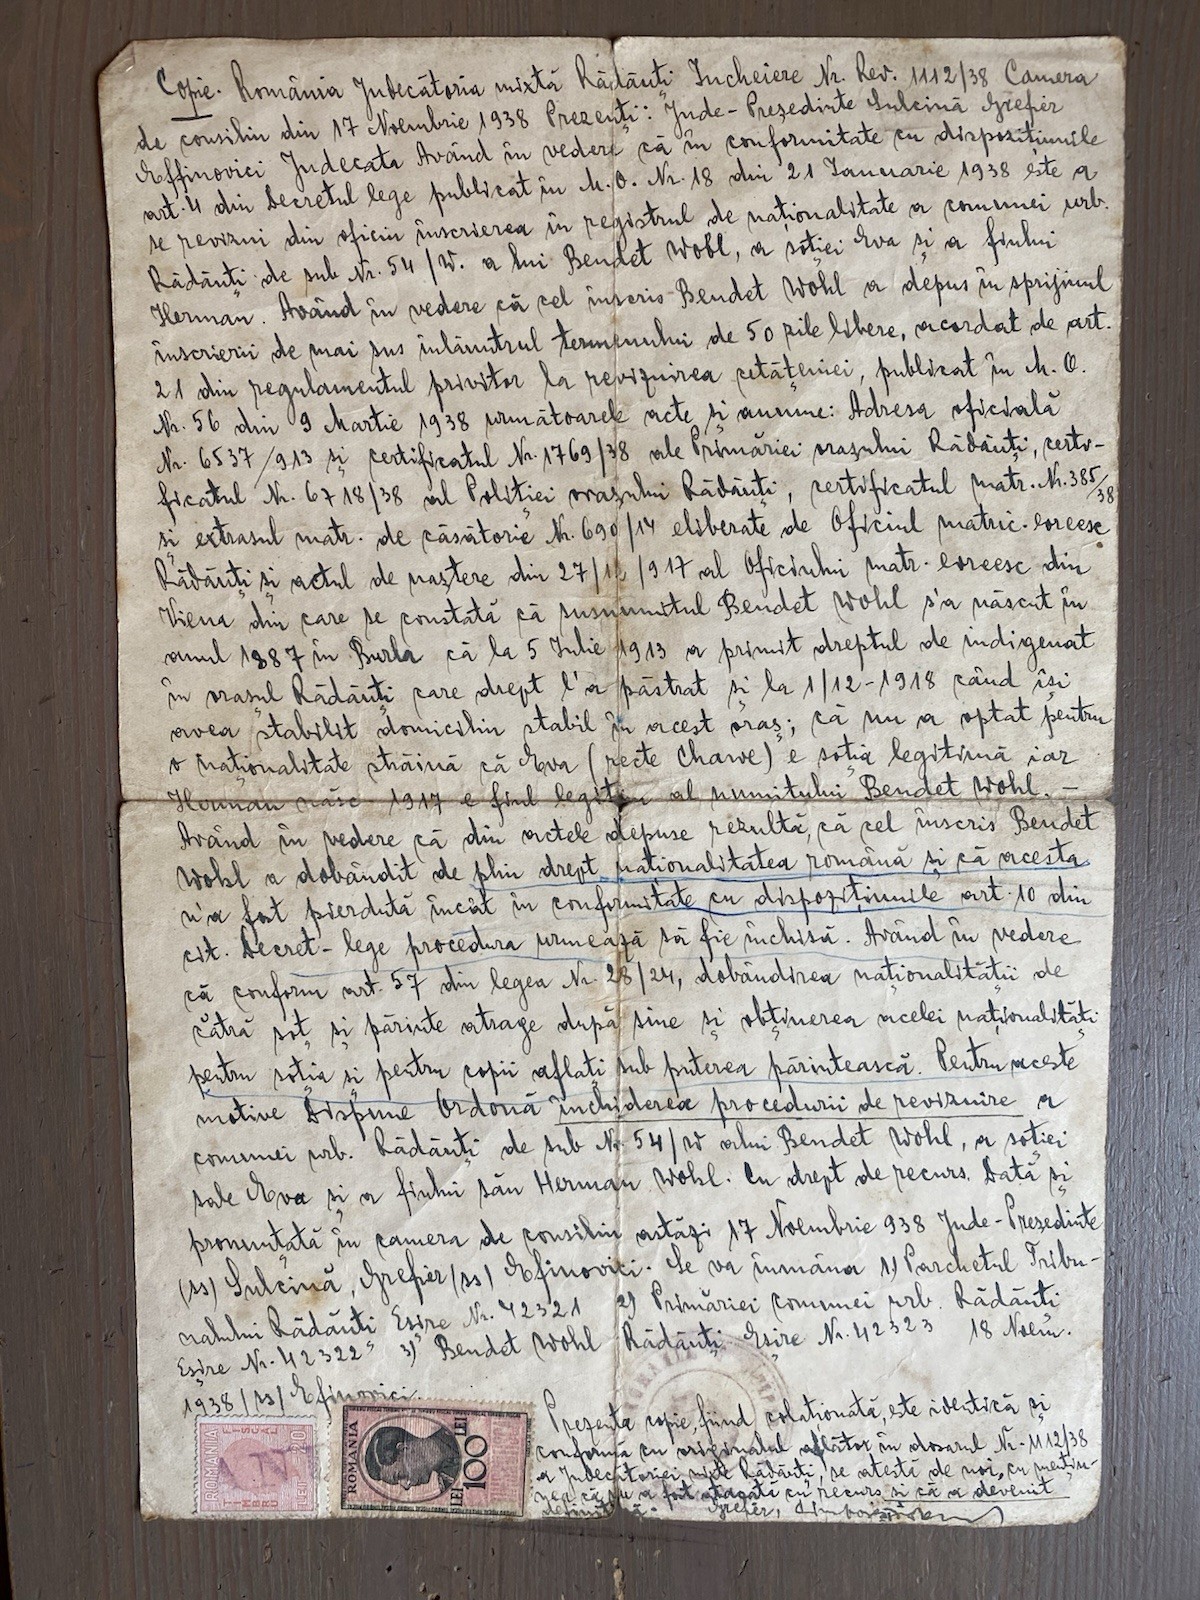 Copie. România Judecătoria mixtă Rădăuți Incheiere Nr. Rev. 1112/38 Camera
de consiliu din 17 Noembrie 1938 Prezenți: Jude-Președinte Sulcină Grefier
Effinovici Judecata Având în vedere că în conformitate cu dispozițiunile
art. 4 din Decretul lege publicat în M. O. Nr. 18 din 21 Ianuarie 1938 este a
se revizui din oficiu înscrierea în registrul de naționalitate a comunei urb.
Rădăuți de sub Nr. 54/W. a lui Bendet Wohl, a soției Eva și a fiului
Herman. Având în vedere că cel înscris Bendet Wohl a depus în sprijinul
înscrierii de mai sus inlăuntrul termenului de 50 zile libere, acordat de art.
21 din regulamentul privitor la revizuirea cetățeniei, publicat în M. O.
Nr. 56 din 9 Martie 1938 următoarele acte și anume: Adresa oficială
Nr. 6537/913 și certificatul Nr. 1769/38 ale Primăriei orașului Rădăuți, certi-
ficatul Nr. 6718/38 al Poliției orașului Rădăuți, certificatul matr. Nr. 385/38
și extrasul matr. de căsătorie Nr. 690/14 eliberate de Oficiul matric. evreesc
Rădăuți și actul de naștere din 27/12/917 al Oficiului matr. evreesc din
Viena din care se constată că susnumitul Bendet Wohl s'a născut în
anul 1887 în Burla că la 5 Iulie 1913 a primit dreptul de indigenat
în orașul Rădăuți care drept l'a păstrat și la 1/12-1918 când își
avea stabilit domiciliu stabil în acest oraș; că nu a optat pentru
o naționalitate străină că Eva (recte Chawe) e soția legitimă iar
Herman născ. 1917 e fiul legitim al numitului Bendet Wohl. —
Având în vedere că din actele depuse rezultă, că cel înscris Bendet
Wohl a dobândit de plin drept naționalitatea română și că acesta
n'a fost pierdută încât în conformitate cu dispozițiunile art. 10 din
cit. Decret-lege procedura urmează să fie închisă. Având în vedere
că conform art. 57 din legea Nr. 28/24, dobândirea naționalității de
cătră soț și părinte atrage după sine și obținerea acelei naționalități
pentru soția și pentru copii aflați sub puterea părintească. Pentru aceste
motive Dispune Ordonă închiderea procedurii de revizuire a
comunei urb. Rădăuți de sub Nr. 54/W a lui Bendet Wohl, a soției
sale Eva și a fiului său Herman Wohl. Cu drept de recurs. Dată și
pronunțată în camera de consiliu astăzi 17 Noembrie 938 Jude-Președinte
(ss) Sulcină, Grefier (ss) Efinovici. Se va înmâna 1) Parchetul Tribu-
nalului Rădăuți Eșire Nr. 42321 2) Primăriei comunei urb. Rădăuți
Eșire Nr. 42322 3) Bendet Wohl Rădăuți Eșire Nr. 42323 18 Noem.
1938 /ss/ Efinovici.
Prezenta copie, fiind colaționată, este identică și
conformă cu originalul aflător în dosarul Nr. 1112/38
a Judecătoriei mixte Rădăuți, se atestă de noi, cu mențiu-
nea că nu a fost atacată cu recurs și că a devenit
definitivă. Grefier,
ROMANIA
TIMBRU FISCAL
LEI
ROMANIA
100 LEI
LEI